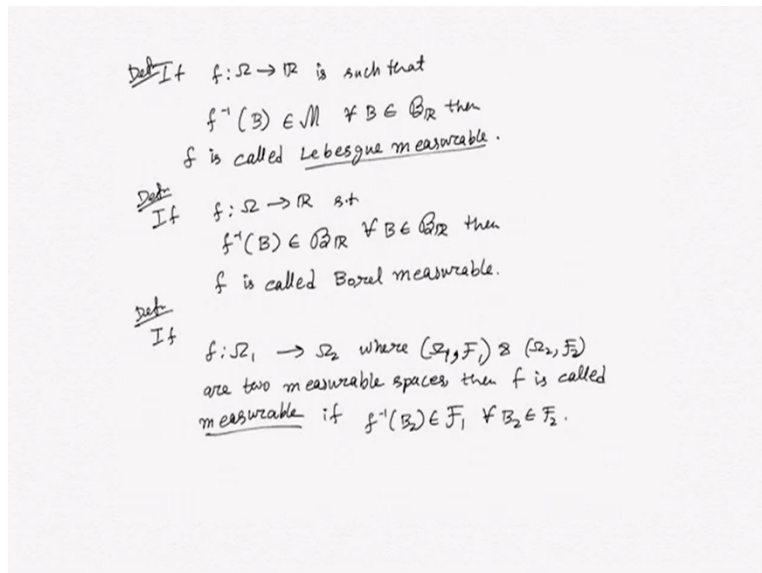 Defn If f: Ω → ℝ is such that
f⁻¹(B) ∈ ℳ ∀ B ∈ ℬ_ℝ then
f is called Lebesgue measurable.
Defn
If f: Ω → ℝ s.t
f⁻¹(B) ∈ ℬ_ℝ ∀ B ∈ ℬ_ℝ then
f is called Borel measurable.
Defn
If
f: Ω₁ → Ω₂ where (Ω₁, F₁) & (Ω₂, F₂)
are two measurable spaces, then f is called
measurable if f⁻¹(B₂) ∈ F₁ ∀ B₂ ∈ F₂.